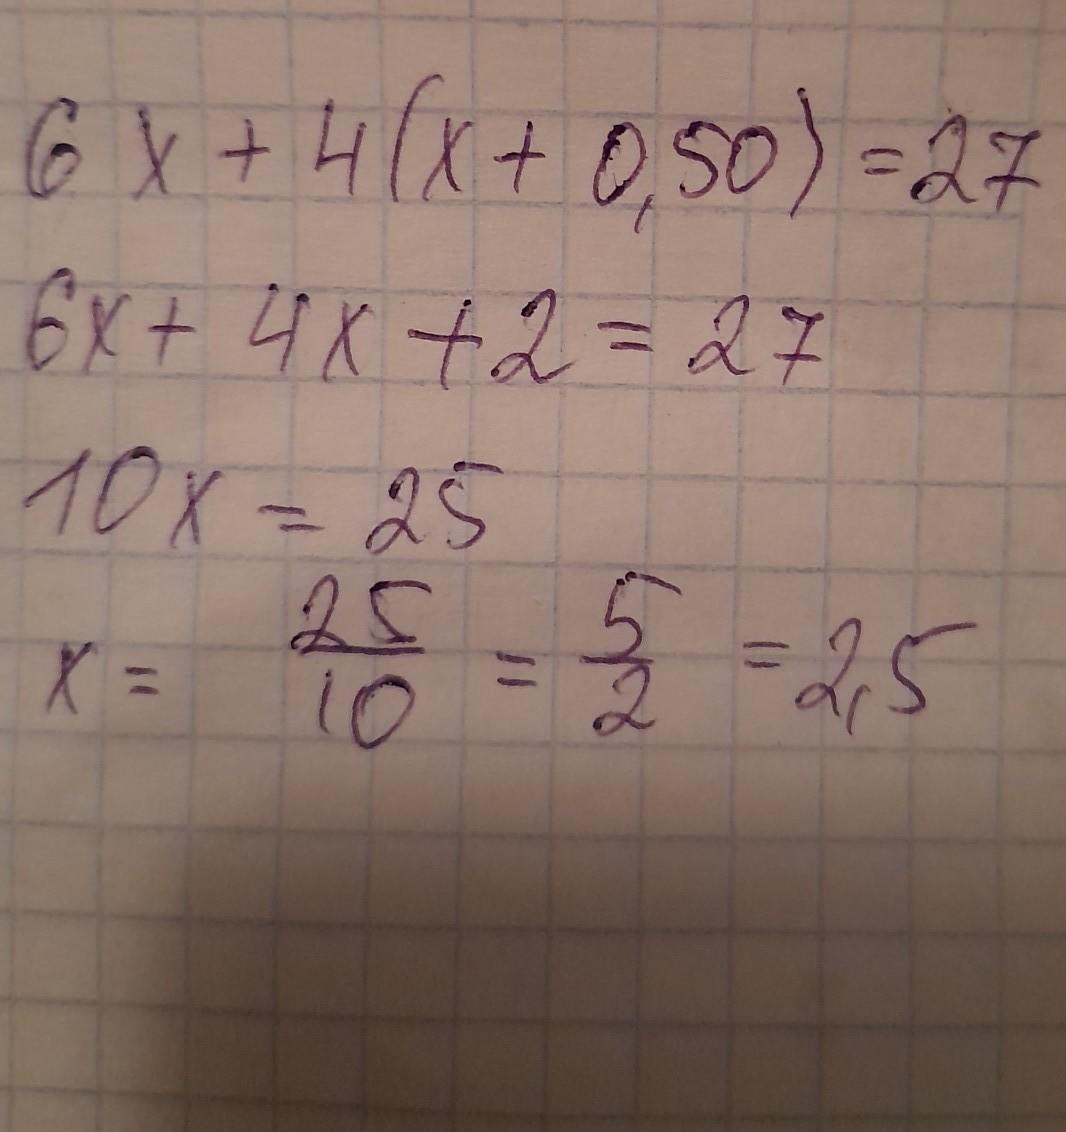 6x + 4(x + 0,50) = 27
6x + 4x + 2 = 27
10x = 25
x = 25/10 = 5/2 = 2,5